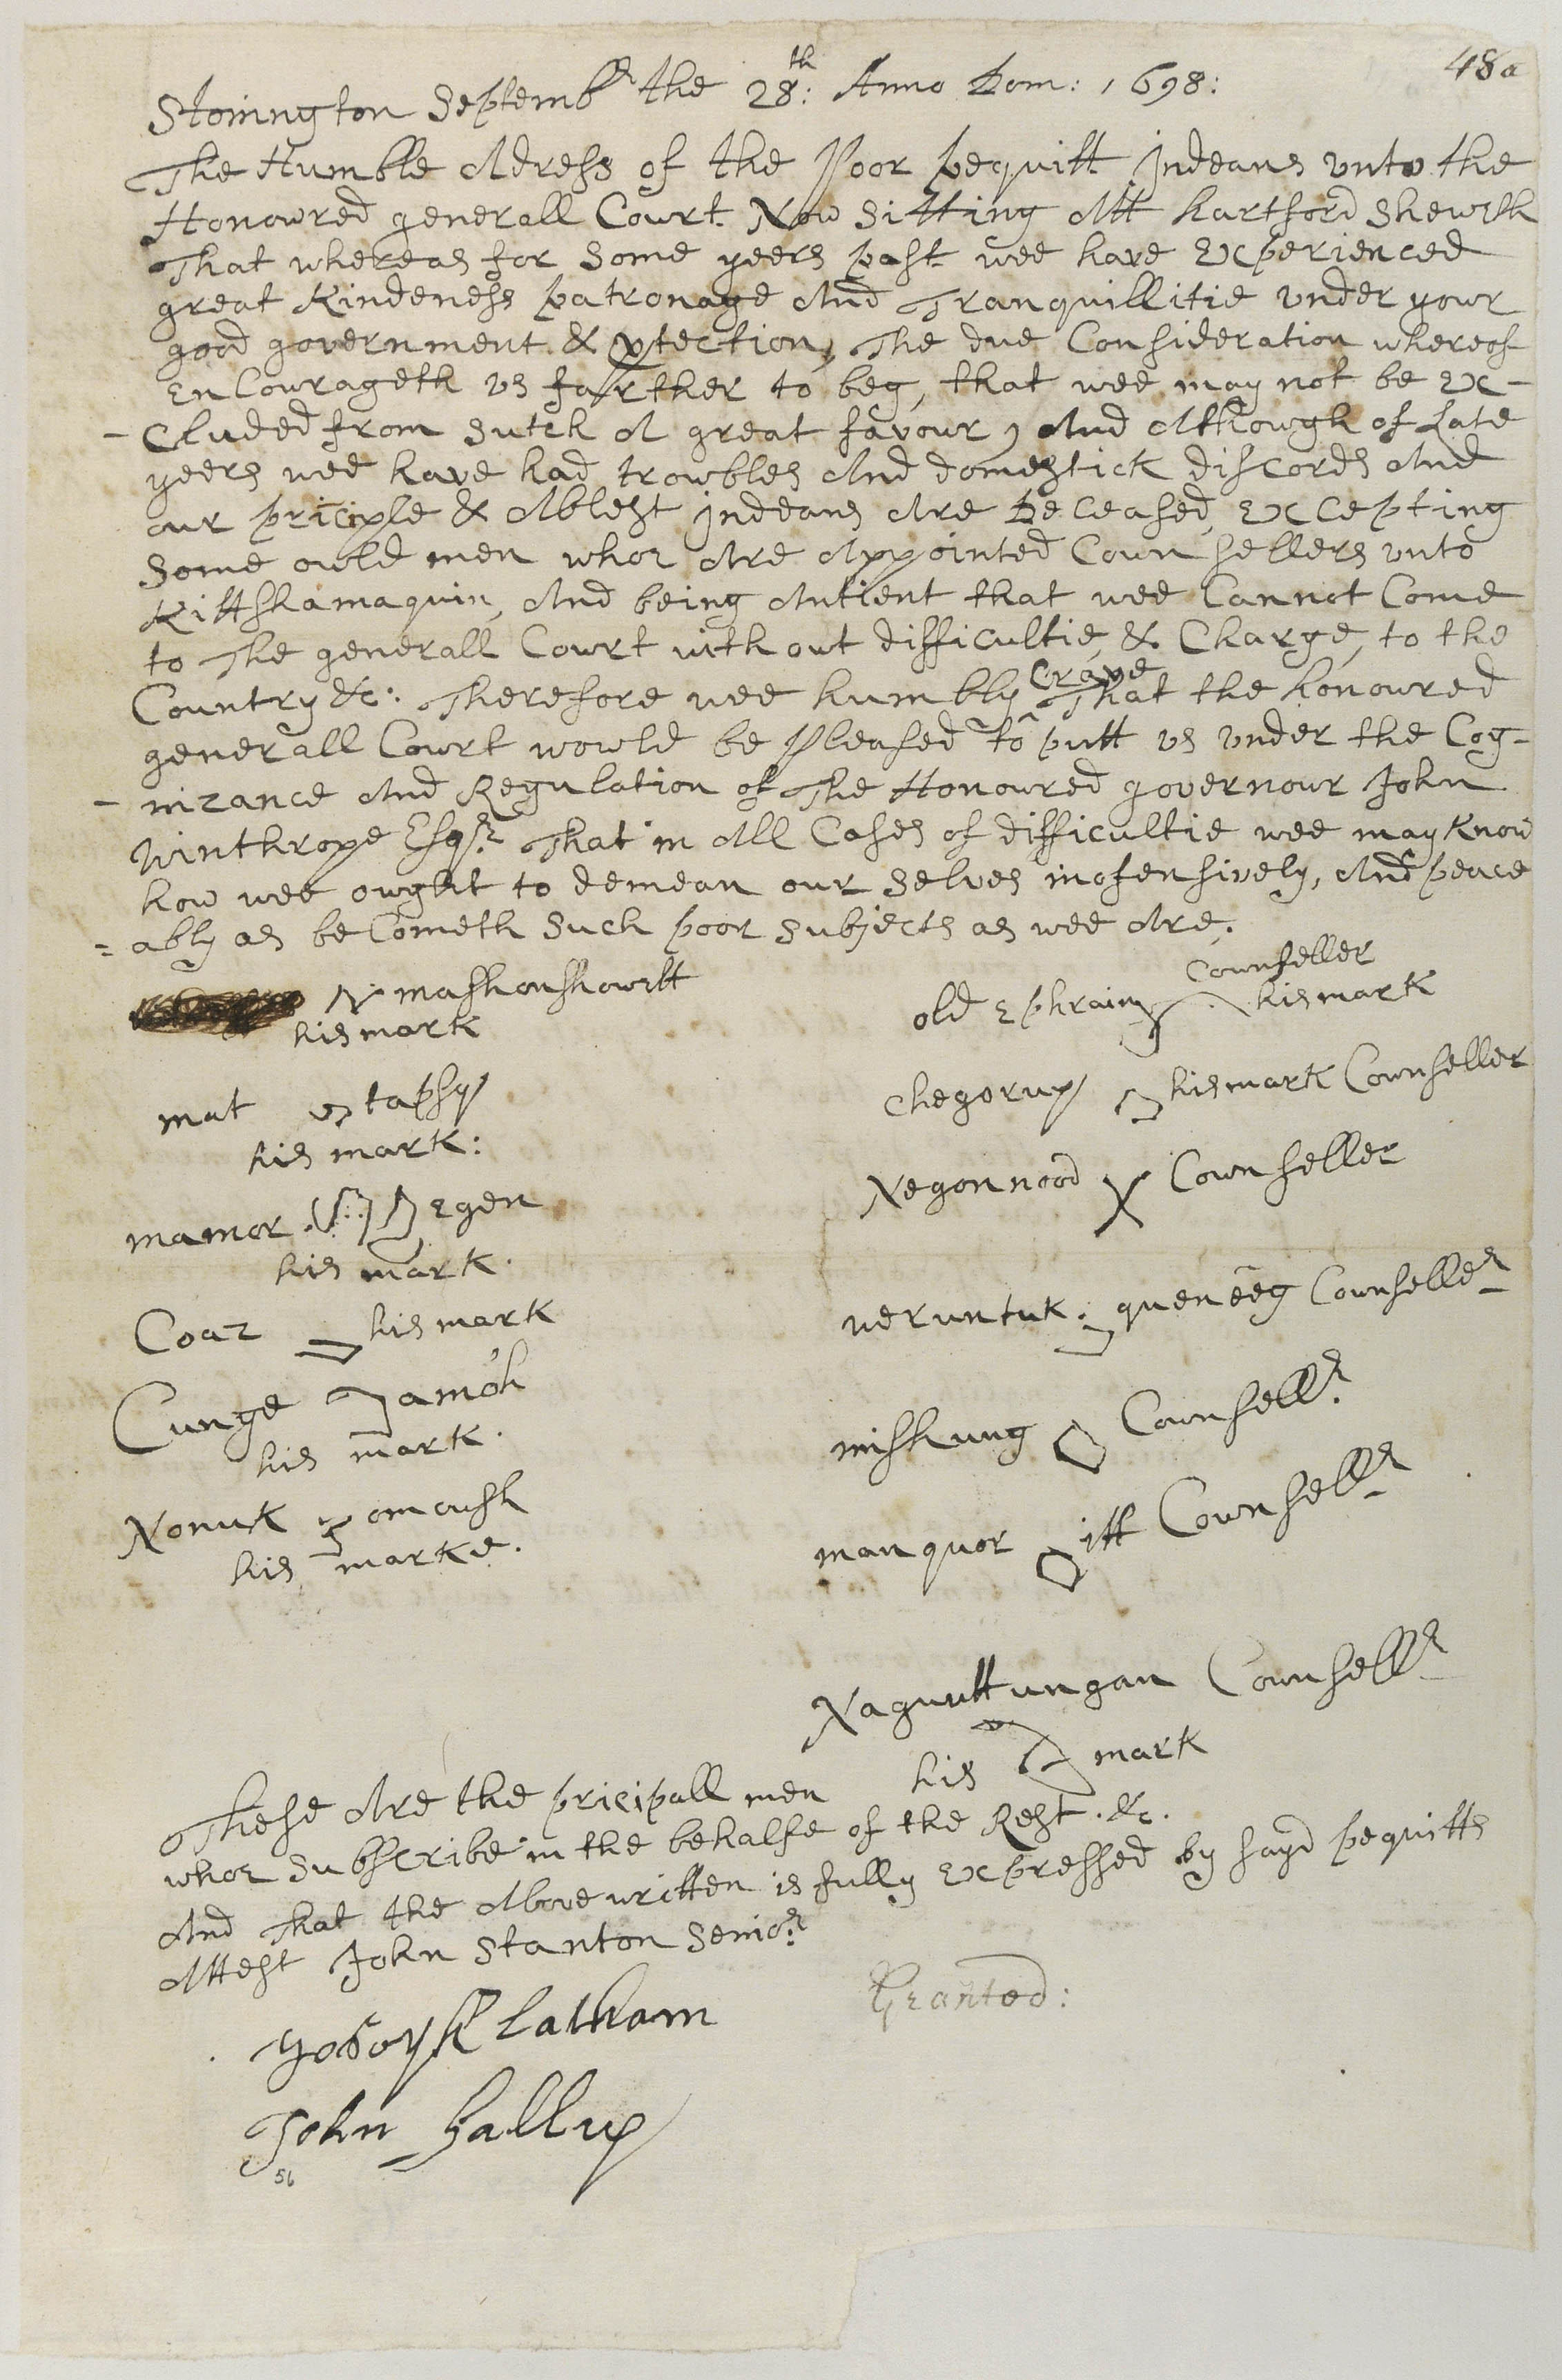 48a
Stonington Septembr the 28th: Anno Dom: 1698:
The Humble Adress of the Poor pequitt Indeans vnto the
Honoured generall Court Now Sitting Att hartford Sheweth
That whereas for Some yeers past wee have Experienced
great Kindeness patronage And Tranquillitie vnder your
good government & ptection, The due Consideration whereof
EnCourageth us farther to beg, that wee may not be Ex-
- Cluded from Sutch A great favour, And Althowgh of Late
yeers wee have had trowbles And domestick discords And
our priciple & Ablest Indeans Are Deceased, Excepting
Some owld men whoe Are Appointed Counsellers vnto
Kittshamaquin, And being Antient that wee Cannot Come
to The generall Court without difficultie, & Charge, to the
Country &c: Therefore wee humbly Crave That the honoured
generall Court would be Pleased to putt us vnder the Cog-
- nizance And Regulation of The Honoured governour John
Winthrope Esqr. That in All Cases of difficultie wee may Know
how wee ought to demean our Selves inofensively, And peace
= ably as beCometh Such poor Subjects as wee Are.
mashonshowitt
his mark
mat tapsq
his mark:
mamor egen
his mark.
Coaz his mark
Cunge amoh
his mark.
Nonuk omoush
his marke.
old Ephraim Counseller
his mark
Chegorup his mark Counseller
Negonnood X Counseller
neruntuk: queneeg Counseller
mishung Counsellr.
manquor itt Counsellr
Naguuttungan Counsellr
his mark
These Are the pricipall men
whoe Subscribe in the behalfe of the Rest. &c.
And That the Above written is fully Expressed by sayd pequitts
Attest John Stanton Senior.
Joseph Latham
John Gallup
Granted:
56